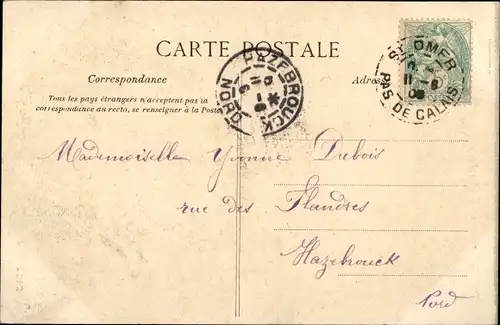 CARTE POSTALE
Correspondance
Adresse
Tous les pays étrangers n'acceptent pas la
correspondance au recto, se renseigner à la Poste
HAZEBROUCK
NORD
ST OMER
PAS DE CALAIS
Mademoiselle Yvonne Dubois
rue des Flandres
Hazebrouck
Nord